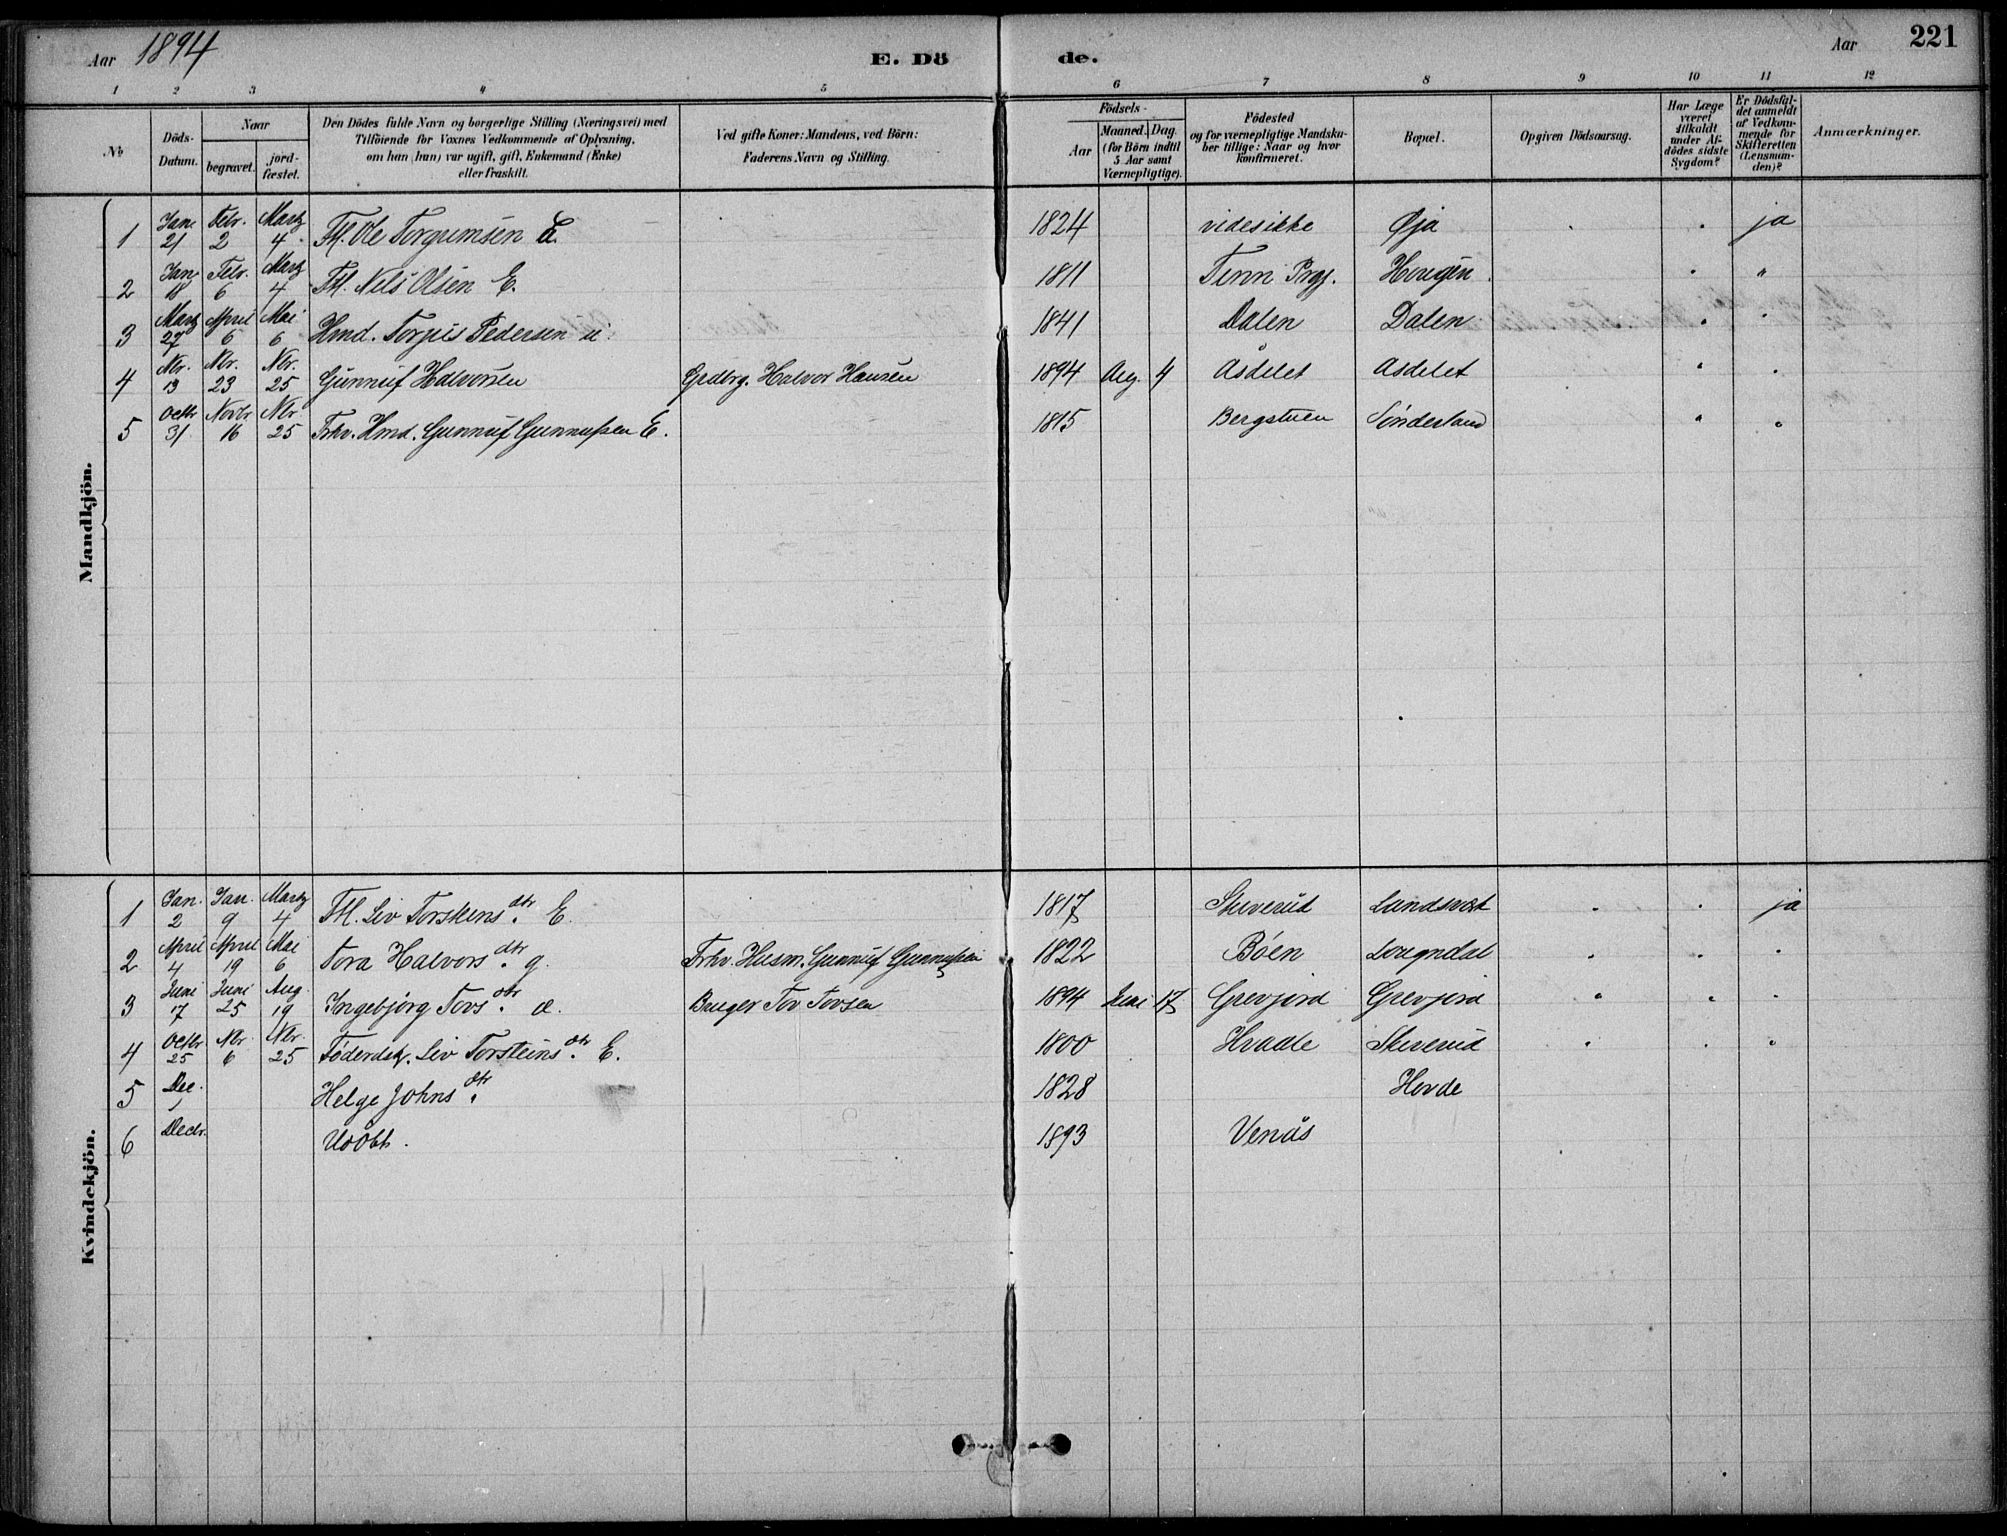 Aar 1894 E. Dö de. Aar 221
1 2 3 4 5 6 7 8 9 10 11 12
No
Döds-Datum.
Naar
begravet. jord-fæstet.
Den Dödes fulde Navn og borgerlige Stilling (Næringsvei) med
Tilföiende for Voxnes Vedkommende af Oplysning,
om han (hun) var ugift, gift, Enkemand (Enke)
eller fraskilt.
Ved gifte Koner: Mandens, ved Börn:
Faderens Navn og Stilling.
Födsels-
Aar
Maaned. Dag.
(for Börn indtil
5 Aar samt
Værnepligtige).
Födested
og for værnepligtige Mandska-
ber tillige: Naar og hvor
konfirmeret.
Bopæl.
Opgiven Dödsaarsag.
Har Læge
været
tilkaldt
under Af-
dödes sidste
Sygdom?
Er Dödsfal-
det anmeldt
af Vedkom-
mende for
Skifteretten
(Lensman-
den)?
Anmærkninger.
Mandkjön.
1 Jan. 21 Febr. 2 Martz 4 Fhl. Ole Torgrimsen E. 1824 vides ikke Øja . . ja
2 Jan 18 Febr. 6 Martz 4 Fhl. Nels Olsen E. 1811 Tinn Prgj. Hougen . "
3 Martz 27 April 6 Mai 6 Hmd. Torjus Pedersen u. 1841 Dalen Dalen " "
4 Nbr. 13 Nbr. 23 Nbr. 25 Gunnuf Halvorsen Grdbrg. Halvor Hansen 1894 Aug. 4 Åsdelet Asdelet " .
5 Octbr 31 Novbr 16 Nbr. 25 Frhv. Hmd. Gunnuf Gunnufsen E. 1815 Bergstuen Sønderland " "
Kvindekjön.
1 Jan. 2 Jan. 9 Martz 4 Fhl. Liv Torsteins dtr. E. 1817 Skuverud Landsvæt . . ja
2 April 4 April 19 Mai 6 Tora Halvors dtr. g. Frhv. Husm. Gunnuf Gunnufsen 1822 Böen Lougndal . . .
3 Juni 17 Juni 25 Aug. 19 Ingebjörg Tovs dtr. æ. Bruger Tov Tovsen 1894 Mai 17 Grevjord Grevjord " " "
4 Octbr 25 Nbr. 6 Nbr. 25 Föderdsk. Liv Torsteins dtr. E. 1800 Hvaale Skuverud " . "
5 Dec. 1 Helge Johns dtr. 1828 Hovde
6 Decbr. Udöbt. 1893 Venås